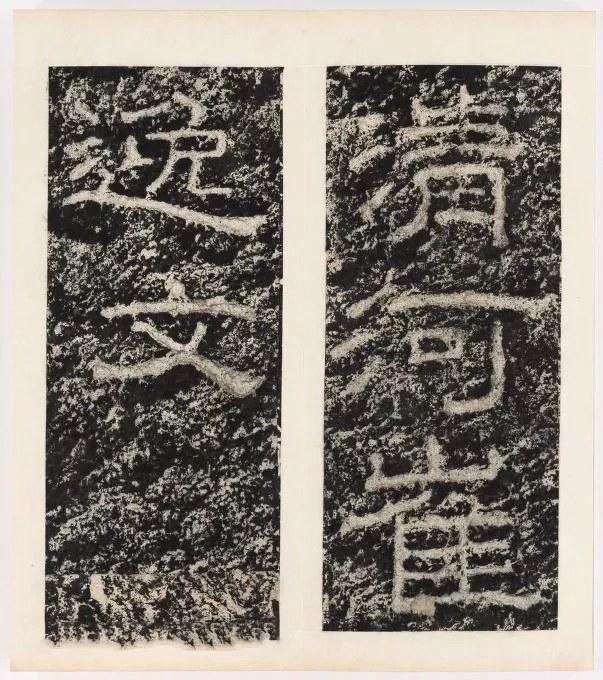 清河崔
逸文